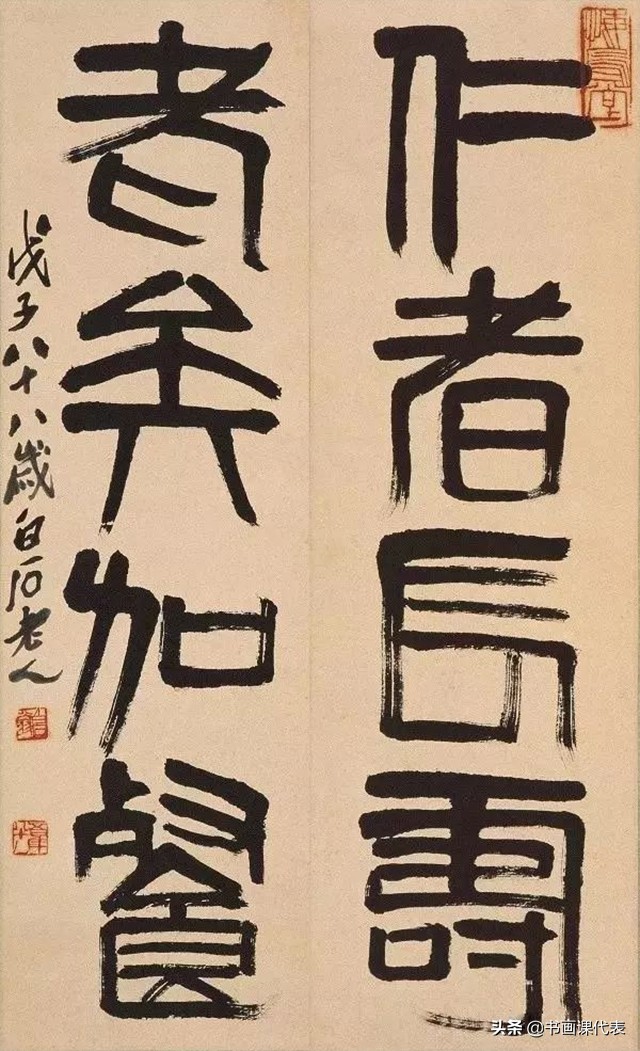 仁者長壽
老矣加餐
戊子八十八歲白石老人
头条 @书画课代表